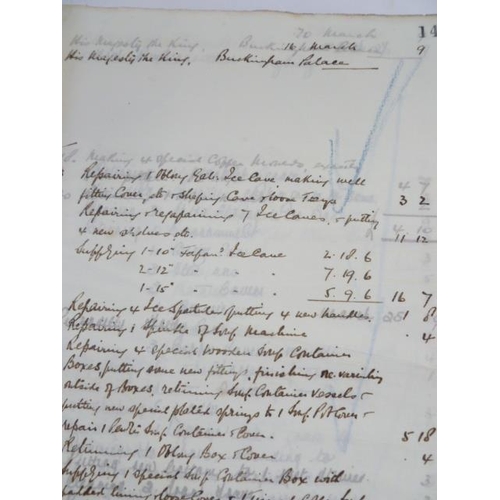 To March
14
His Majesty the King, Buckingham
16 March
9
His Majesty the King, Buckingham Palace
Making 4 Special Copper Moulds
Repairing 1 Oblong Ice Cave making well
fitting Cover, do & shaping Cave & loose Trays 3 2
Repairing & rejapanning 7 Ice Caves, & putting
4 new do. 11 12
Supplying 1-10" Japan'd Ice Cave 2.18.6
2-12" " " 7.19.6
1-15" " " 5.9.6 16 7
Repairing 4 Ice Spatulas putting 4 new Handles. 1 8
Repairing 1 Spindle of Soup Machine . 4
Repairing 4 Special Wooden Soup Container
Boxes, putting some new fittings, finishing re-varnishing
outside of Boxes, retinning Soup Container Vessels &
putting new special plated springs to 1 Soup Pot Cover &
repair 1 Soup Container & Cover. 5 18
Retinning 1 Oblong Box & Cover . 4
Supplying 1 Special Soup Container Box with